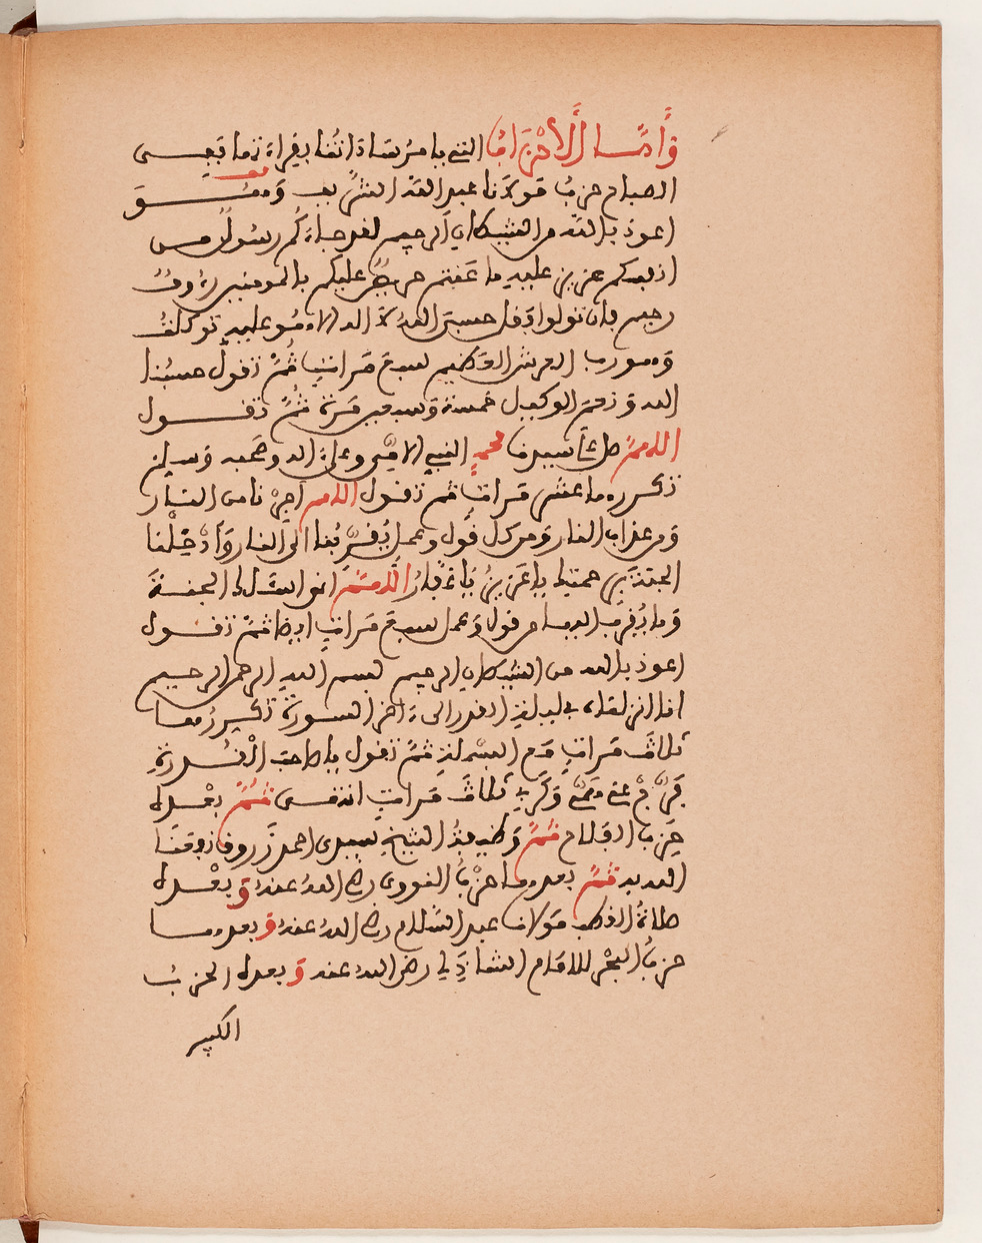 وَأَمَّا الْأَحْزَابُ التي يامر ساداتنا بقراءتها فهي
الصباح حزبُ مَولانا عبد الله الشريف وَهُوَ
اعوذ بالله من الشيطان الرجيم لقد جاءَكُم رسُولٌ من
انفسكم عزيز عليه ما عَنتم حريصٌ عليكم بالمومنين رءُوفٌ
رحيم فإن تولوا فقل حسبيَ اللهُ لا اله الا هُو عليه توكلتُ
وَهو رب العرش العَظيم سبعَ مَرات ثُمَّ تقول حسبُنا
الله وَنعمَ الوكيل خمسة وَسبعين مَرة ثمَّ تقول
اللهمَّ صل على سيدنا محمدٍ النبي الامِّي وعلى اله وصَحبه وَسلم
تكرره عشر مَرات ثم تقول اللهم اجرْنا من النار
وَمن عذاب النار وَمن كل قَول وعمل يُقرِّبُنا الى النار وَأَدْخِلْنا
الجنة برحمتك يا عَزيزُ يَا غَفارُ اللهمَّ انا نسئلك الجنة
وَما يُقرب اليها من قول وَعمل سبعَ مَراتٍ ايضا ثمَّ تقول
اعوذ بالله من الشيطان الرجيم بسم الله الرحمن الرحيم
انا انزلناه في ليلة القدر الى ءاخر السورة تكررها
ثلاثَ مَراتٍ مع البسْملة ثمَّ تقول يا صاحبَ الْقُدرة
فَرِّجْ عني هَمِّي وَكَربي ثلاثَ مَراتٍ انتهى ثمَّ بعْده
حِزب الفلاح ثمَّ وَظيفةُ الشيخ سيدي احمد زَروق نفعَنا
الله به ثمَّ بعدها حزْبُ النووي رضي اللهُ عنهُ وَبعْده
صلاةُ القطب مَولانا عبد السَّلام رضي اللهُ عنهُ وَبعدها
حزبُ البحْر للامَام الشاذِلي رضيَ اللهُ عنه وَبعده الحزبُ
الكبير